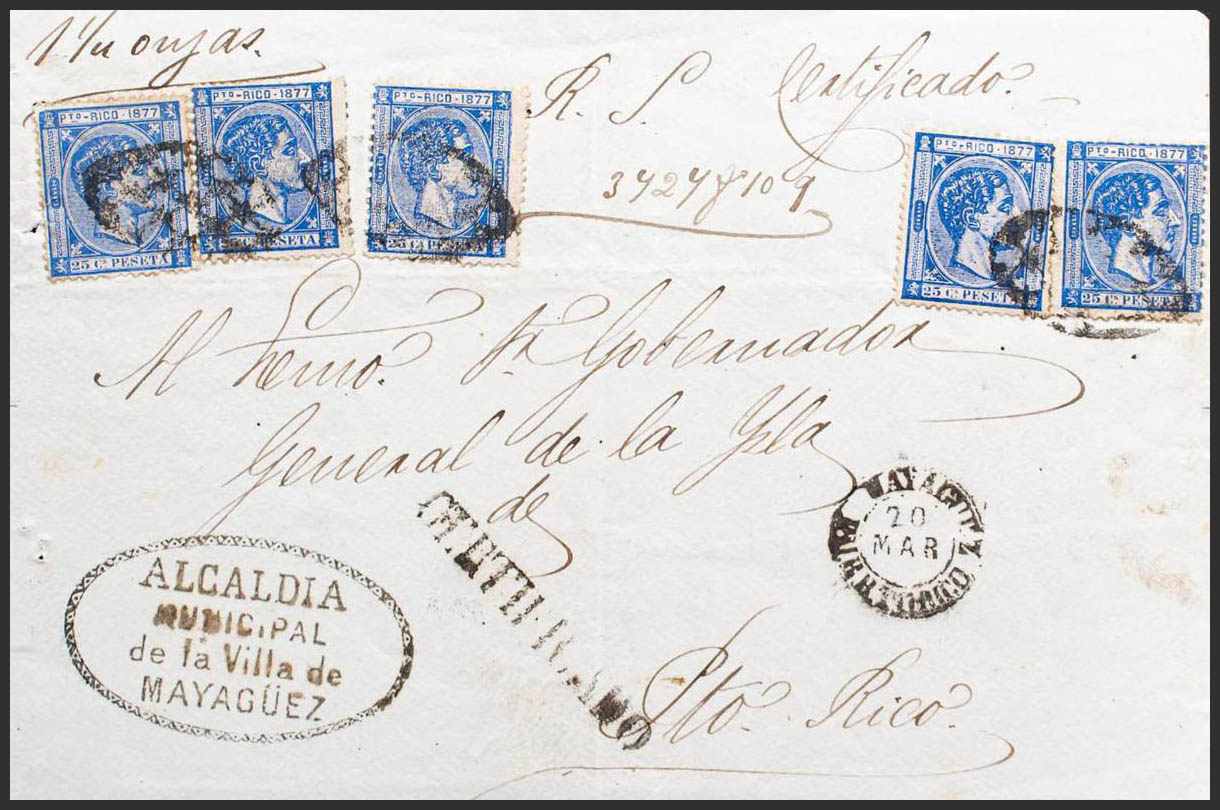 onzas.
R. S. Certificado.
PTO-RICO·1877
25 Cs PESETA
PTO-RICO·1877
25 Cs PESETA
PTO-RICO·1877
25 Cs PESETA
PTO-RICO·1877
25 Cs PESETA
PTO-RICO·1877
25 Cs PESETA
Al Exmo. Sr Gobernador
General de la Ysla
de
Pto. Rico.
CERTIFICADO
MAYAGUEZ
20
MAR
PUERTO RICO
ALCALDIA
MUNICIPAL
de la Villa de
MAYAGÜEZ